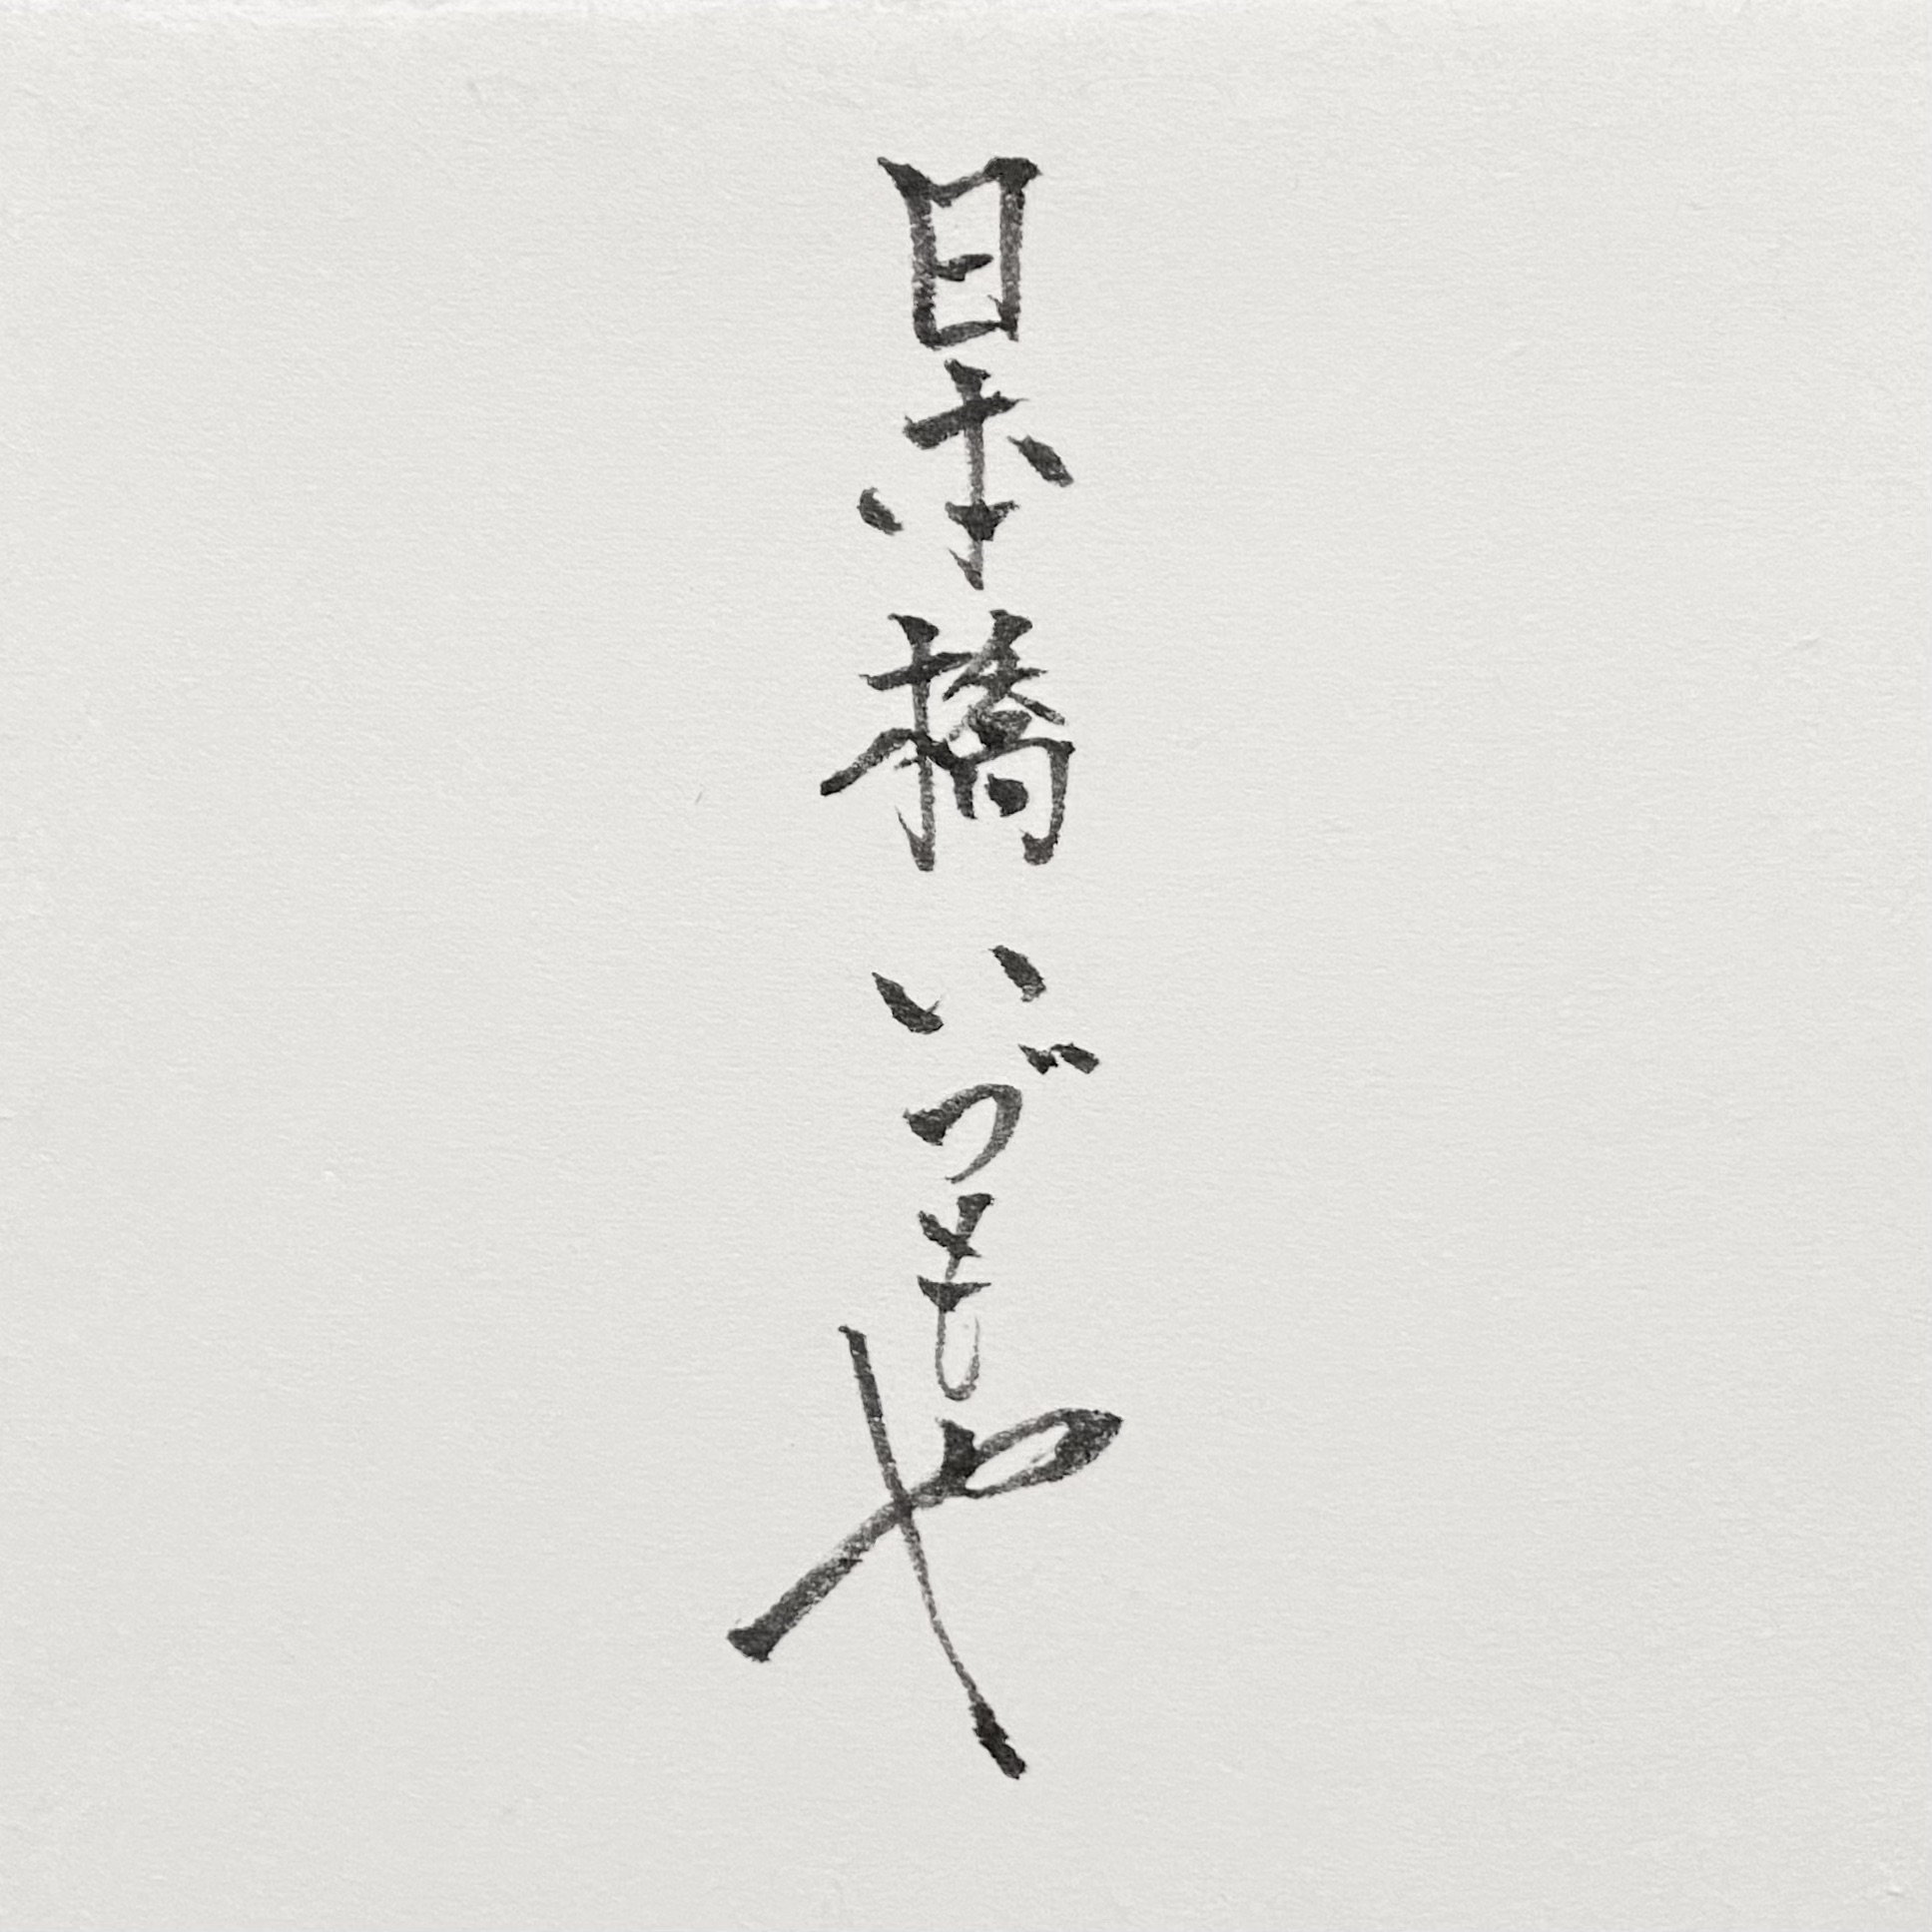 日本橋いづもや